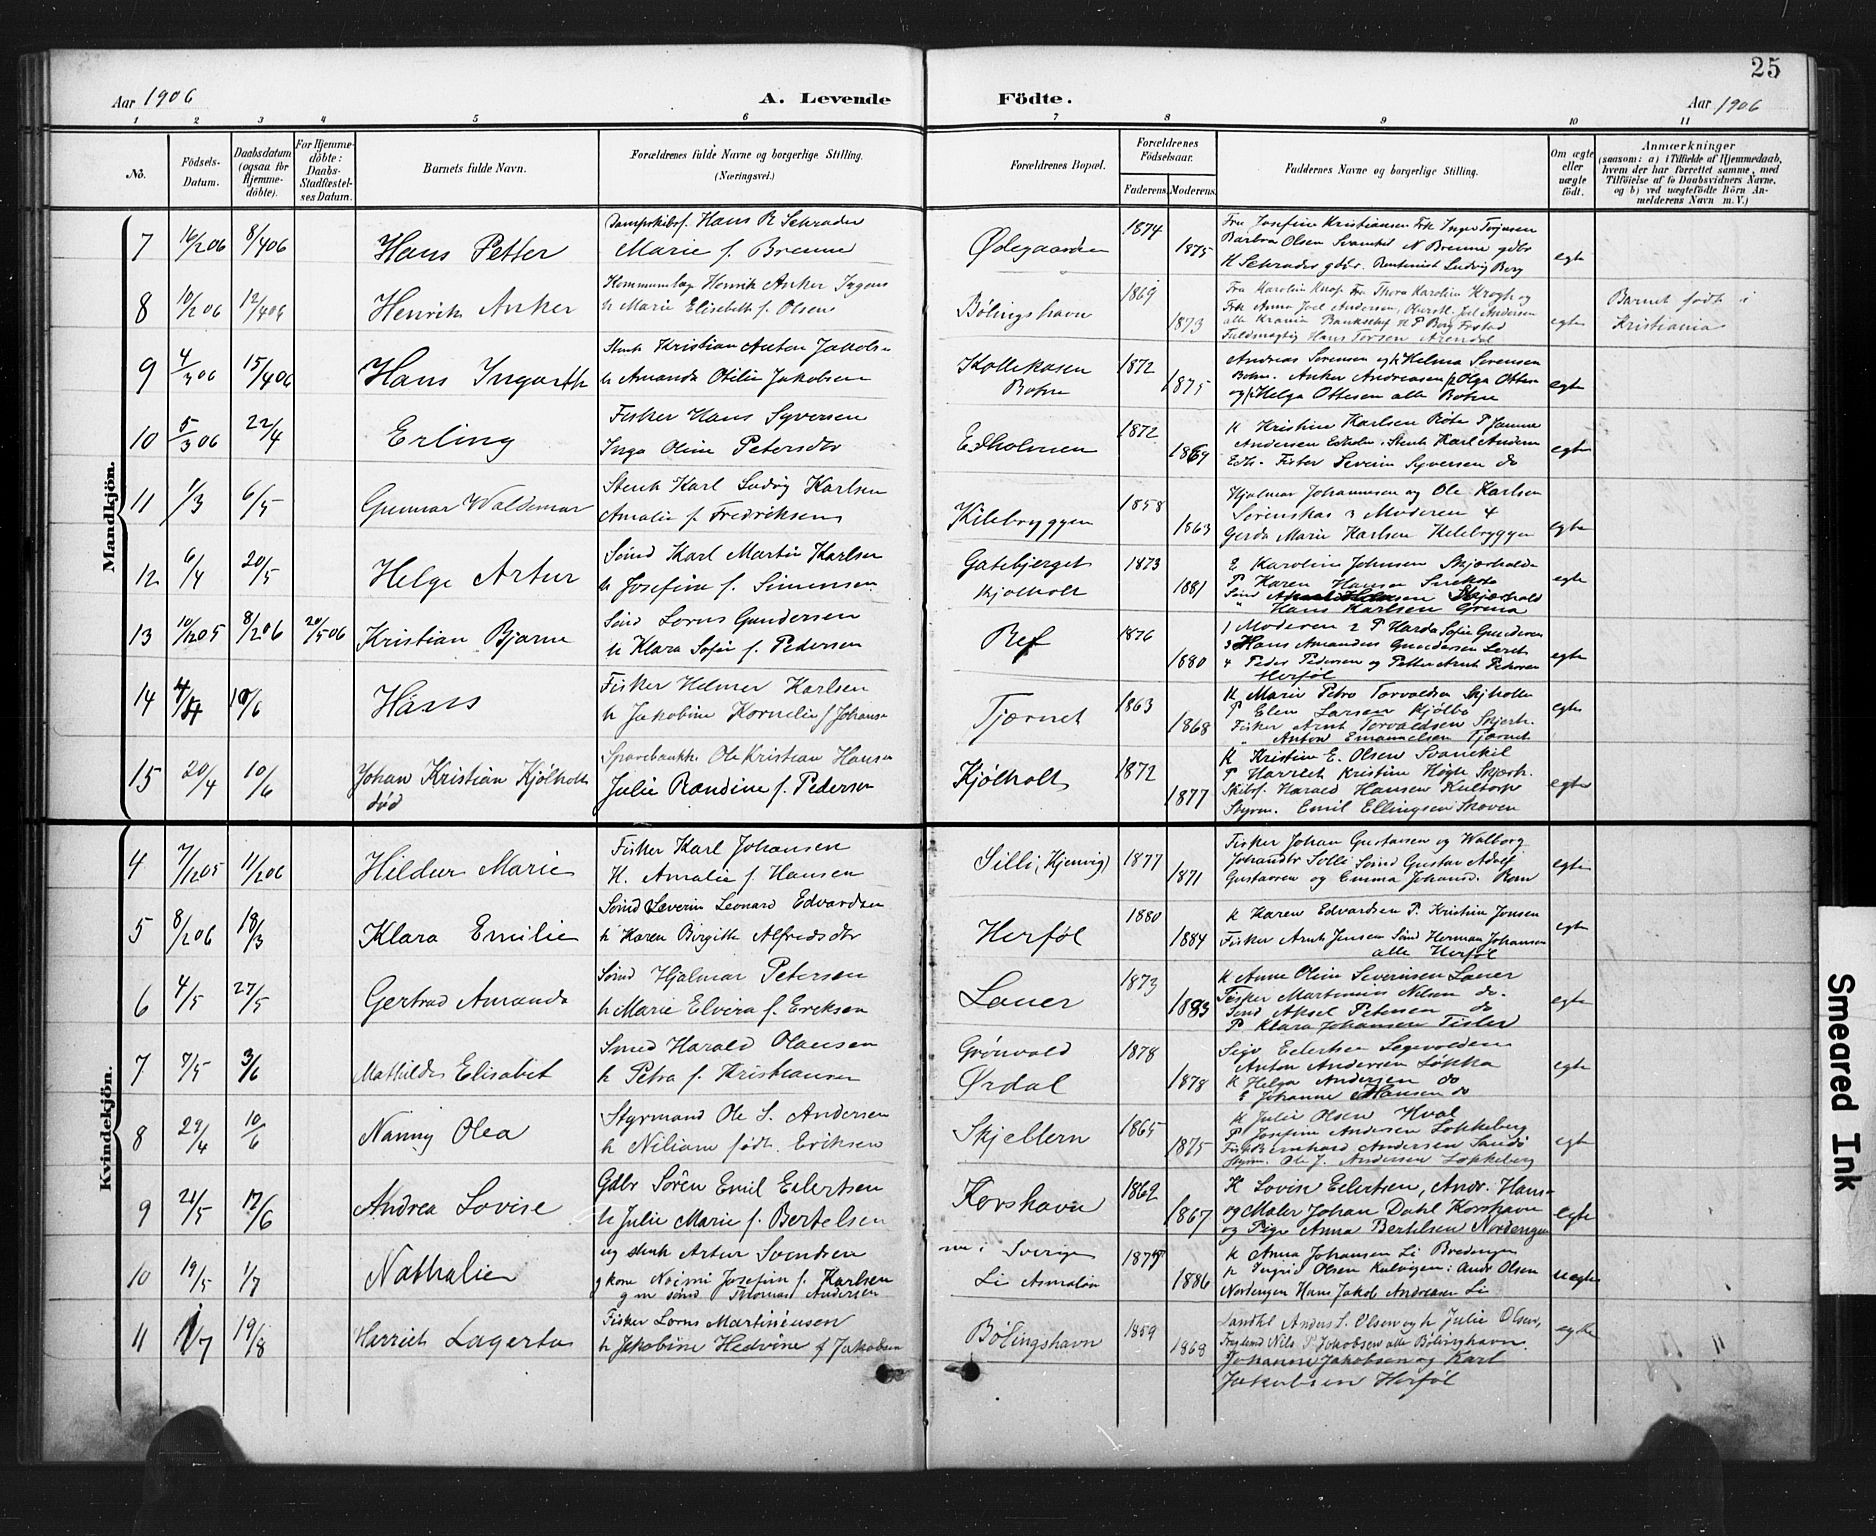 25
Aar 1906 A. Levende Födte. Aar 1906
1 2 3 4 5 6 7 8 9 10 11
No. Födsels-Datum. Daabsdatum (ogsaa for Hjemme-döbte). For Hjemme-döbte: Daabs-Stadfæstel-ses Datum. Barnets fulde Navn. Forældrenes fulde Navne og borgerlige Stilling. (Næringsvei.) Forældrenes Bopæl. Forældrenes Födselsaar. Faderens. Moderens. Faddernes Navne og borgerlige Stilling. Om ægte eller uægte födt. Anmærkninger (saasom: a) i Tilfælde af Hjemmedaab, hvem der har forrettet samme, med Tilföielse af to Daabsvidners Navne, og b) ved uægtefödte Börn An-melderens Navn m. V.)
Mandkjön.
7 16/2 06 8/4 06 Hans Petter Dampskibsf. Hans R Schrader
Marie f. Brenne Ødegaarden 1874 1875 Fru Josefine Kristiansen Frk Inger Torjusen
Barbra Olsen Svanekil N Brenne gdbr
H Schrader gdbr. Rentenist Ludvig Berg egte
8 10/2 06 12/4 06 Henrik Anker Henrik Anker
h Marie Elisabeth f. Olsen Bølingshavn 1869 1873 Fru Karolin Fr. Thora Karoline Krogh og
Frk Anna Joel Andersen, Joel Andersen
alle Krania Bankschef H P Berg
Fuldmægtig Hans Torsen Arendal egte Barnet født i
Kristiania
9 4/3 06 15/4 06 Hans Ingarth Stenh Kristian Anton Jakobs-
h Amanda Otilie Jakobsen Kollekasen
Botne 1872 1875 Andreas Sørensen og Helma Sørensen
Botne. Anker Andreasen Olga Ottesn
og Helga Ottesen alle Botne egte
10 5/3 06 22/4 Erling Fisker Hans Syversen
Inga Oline Petersdtr Edholmen 1872 1869 K Kristine Karlsen
Andersen Stenh Karl Andersn
Edh. Fisker Severin Syversen do egte
11 1/3 6/5 Gunnar Waldemar Stenh Karl Ludvig Karlsen
Amalie f. Fredriksen Kilebryggen 1858 1863 Hjalmar Johannesen og Ole Karlsen
Sørenskas 3 Moderen 4
Gerda Marie Karlsen Kilebryggen egte
12 6/4 20/5 Helge Artur Sømd Karl Martin Karlsen
h Josefine f. Simensen Gatebjerget
Kjølholt 1873 1881 E Karoline Johnsen Skjærhalde
P. Karen Hansen
Sømd Skjærhald
" Hans Karlsen Grina egte
13 10/12 05 8/2 06 20/5 06 Kristian Bjarne Sømd Lorns Gundersen
h Klara Sofie f. Pedersen Ref 1876 1880 1 Moderen 2 P Harda Sofie Gundersen
3 Hans Amandus Gundersen
4 Peder Pedersen og Petter Arnt Pedersen
Herføl egte
14 10/6 Hans Fisker Helmer Karlsen
h Jakobine Kornelie f Johanse Tjærnet 1863 1868 K Marie Petra Torvaldsen
P Elen Larsen Kjølbo
Fisker Arnt Torvaldsen Skjærh.
" Anton Emanuelsen Tjærnet egte
15 20/4 10/6 Johan Kristian Kjølholt
død Ole Kristian Hansen
Julie Randine f. Pedersen Kjølholt 1872 1877 K Kristine E. Olsen Svanekil
P Harriet Kristine Høgh Skjærh.
Skibsf. Harald Hansen Kultorp
Styrm. Emil Ellingsen Skoven egte
Kvindekjön.
4 7/12 05 11/2 06 Hildur Marie Fisker Karl Johansen
H. Amalie f. Hansen Silli (Kjenvig) 1877 1871 Fisker Johan Gustavsen og Walborg
Johansdtr Solli Sømd Gustav Adolf
Gustavsen og Emma Johansd. egte
5 8/2 06 18/3 Klara Emilie Sømd Severin Leonard Edvardsen
h Karen Birgitte Alfredsdtr Herføl 1880 1884 K Karen Edvardsen P. Kristine Jensen
Fisker Arnt Jensen Sømd Herman Johansen
alle Herføl egte
6 4/5 27/5 Gertrud Amanda Sømd Hjalmar Petersen
h Marie Elvira f. Eriksen Lauer 1873 1883 K Anne Oline Severinsen Lauer
Fisker Martinius Nilsen do.
Sømd Aksel Petersen do
P Klara Johansen Tisler egte
7 7/5 3/6 Mathilde Elisabet Smed Harald Olausen
h Petra f. Kristiansen Grønvold
Ørdal 1878 1878 Sigv Eilertsen
Anton Andersen Løkka
K Helga Andersen do
E Johanne Hansen do egte
8 29/4 10/6 Nanny Olea Styrmand Ole S. Andersen
h Niliane født Eriksen Skjellern 1865 1875 K Julie Olsen Hval
P Josefine Andersen Løkkeberg
Bernhard Andersen Sandø
Styrm. Ole J. Andersen Løkkeberg egte
9 21/5 17/6 Andrea Lovise Gdbr Søren Emil Eilertsen
h Julie Marie f. Bertelsen Korshavn 1862 1867 K Lovise Eilertsen, Andr. Hans-
og Maler Johan Dahl Korshavn
og Pige Anna Bertelsen Nordengen egte
10 19/5 1/7 Nathalie ug stenh Artur Svendsen
g kone Noimi Josefine f. Karlsen
g m sømd Thomas Andersen nu i Sverige
Li Asmaløn 1879 1886 K Anna Johansen Li Bredengen
P Ingrid Olsen Kalvigen: Andr Olsen
Nordengen Hans Jakob Andreasen Li uegte
11 1/7 19/8 Harriet Lagerta Fisker Lorns Martinéusen
h Jakobine Hedvine f Jakobsen Bølingshavn 1859 1868 Anders S. Olsen og h Julie Olsen,
Nils P Jakobsen alle Bølingshavn.
Johanne Jakobsen og Karl
Jakobsen Herføl egte
Smeared Ink